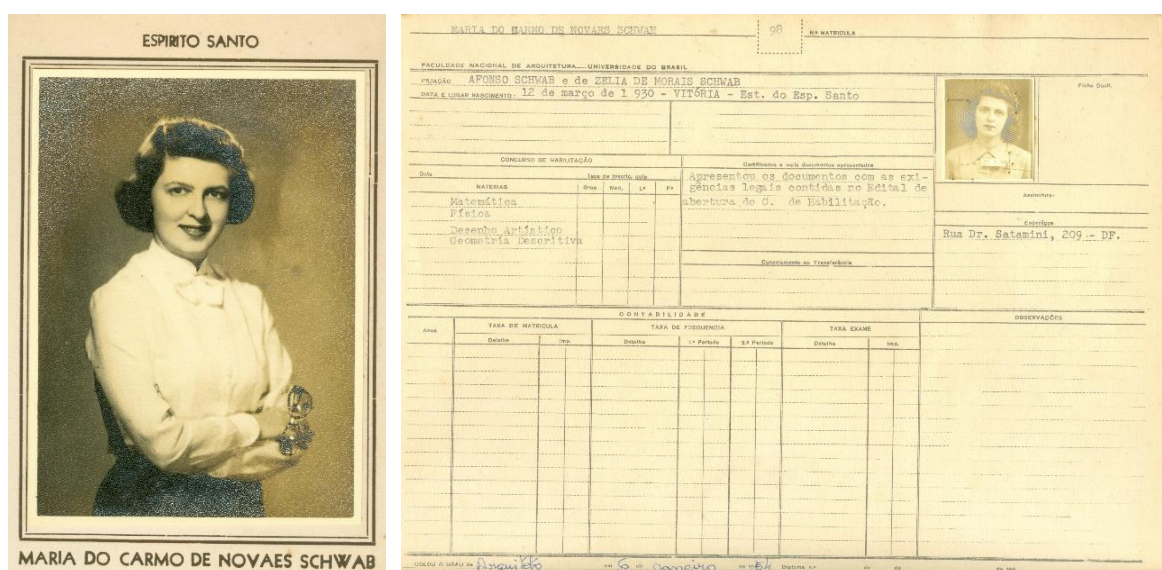 ESPIRITO SANTO
MARIA DO CARMO DE NOVAES SCHWAB
MARIA DO CARMO DE NOVAES SCHWAB
98
Nº MATRICULA
FACULDADE NACIONAL DE ARQUITETURA UNIVERSIDADE DO BRASIL
FILIAÇÃO AFONSO SCHWAB e de ZELIA DE MORAIS SCHWAB
DATA E LUGAR NASCIMENTO: 12 de março de 1 930 - VITÓRIA - Est. do Esp. Santo
Ficha Dactil.
CONCURSO DE HABILITAÇÃO
Data
Taxa de inscric. guia
MATERIAS
Grau
Nac.
1.ª
Fª
Matemática
Física
Desenho Artístico
Geometria Descritiva
Certificados e mais documentos apresentados
Apresentou os documentos com as exi-
gências legais contidas no Edital de
abertura do C. de Habilitação.
Cancelamento ou Transferência
Assinatura:
Endereço
Rua Dr. Satamini, 209 - DF.
CONTABILIDADE
OBSERVAÇÕES
ANO
TAXA DE MATRICULA
TAXA DE FREQUENCIA
TAXA EXAME
Detalhe
Imp.
Detalhe
1.º Periodo
2.º Periodo
Detalhe
Imp.
COLOU O GRAU de Arquiteto em 6 de Janeiro de 1954 Diploma n.º de de de 195